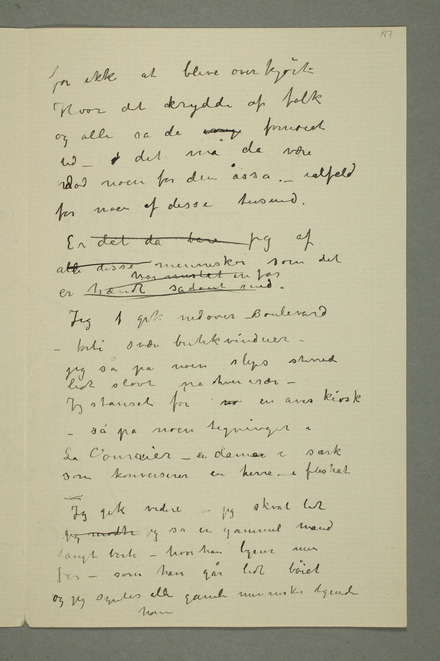 187
for ikk at blive overkjørt
Hvor det krydde af folk
og alle så de fornøiet
ud – det må da være
råd noen for dem åssa. – ialfeld
for noen af disse tusend.
Er det da bare jeg af
alle disse mennesker som det
er hændt sådant med.
Jeg gik nedover Boulevard
– forbi svære butikvinduer –
jeg så på noen slips stirred
lidt slövt på hver især –
Jeg stanset for en avis kiosk
– så på noen tegninger i
La Courrier – en dame i særk
som konverserer en herre – i
Jeg gik videre – jeg skvat lidt
jeg mødte jeg så en gammel mand
langt borte – hvor han ligner min
far – som han går lidt böiet
og jeg syntes alle gamle mennesker lignede
ham